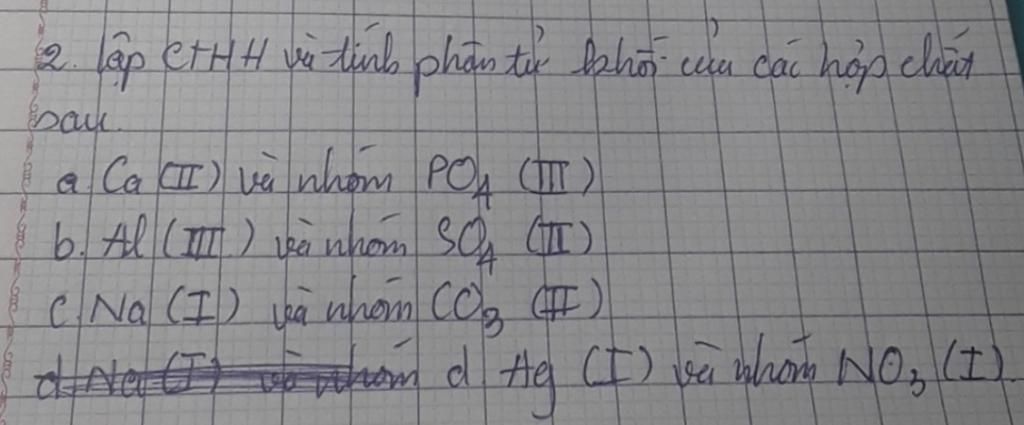 2. lập CTHH và tính phân tử khối của các hợp chất
sau.
a. Ca (II) và nhóm PO4 (III)
b. Al (III) và nhóm SO4 (II)
c. Na (I) và nhóm CO3 (II)
d. Na (I) và nhóm d Ag (I) và nhóm NO3 (I).